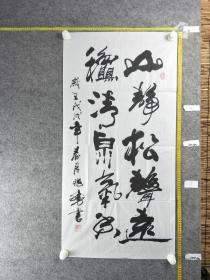 山静松声远
秋清泉气香
岁在戊戌年春月
书